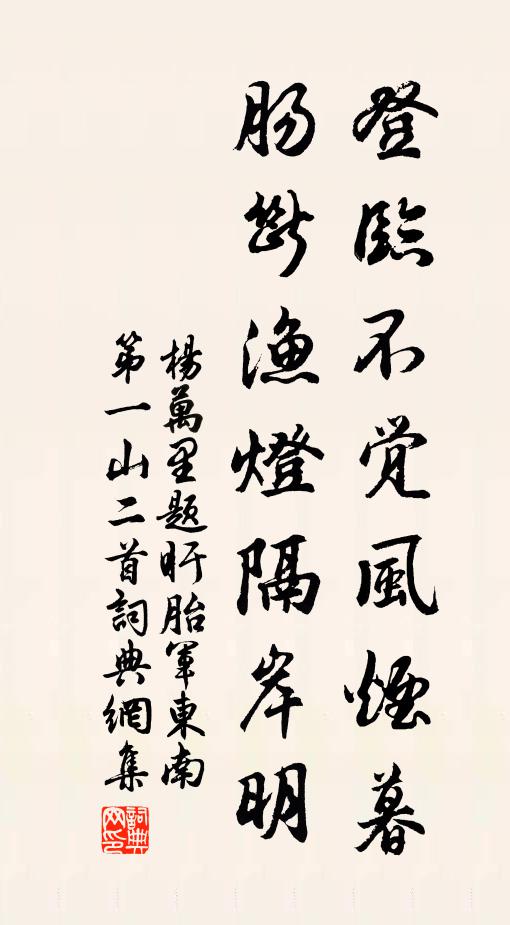 登臨不覺風煙暮
腸斷漁燈隔岸明
楊萬里題盱眙軍東南
第一山二首詞典網集
詞典
网印